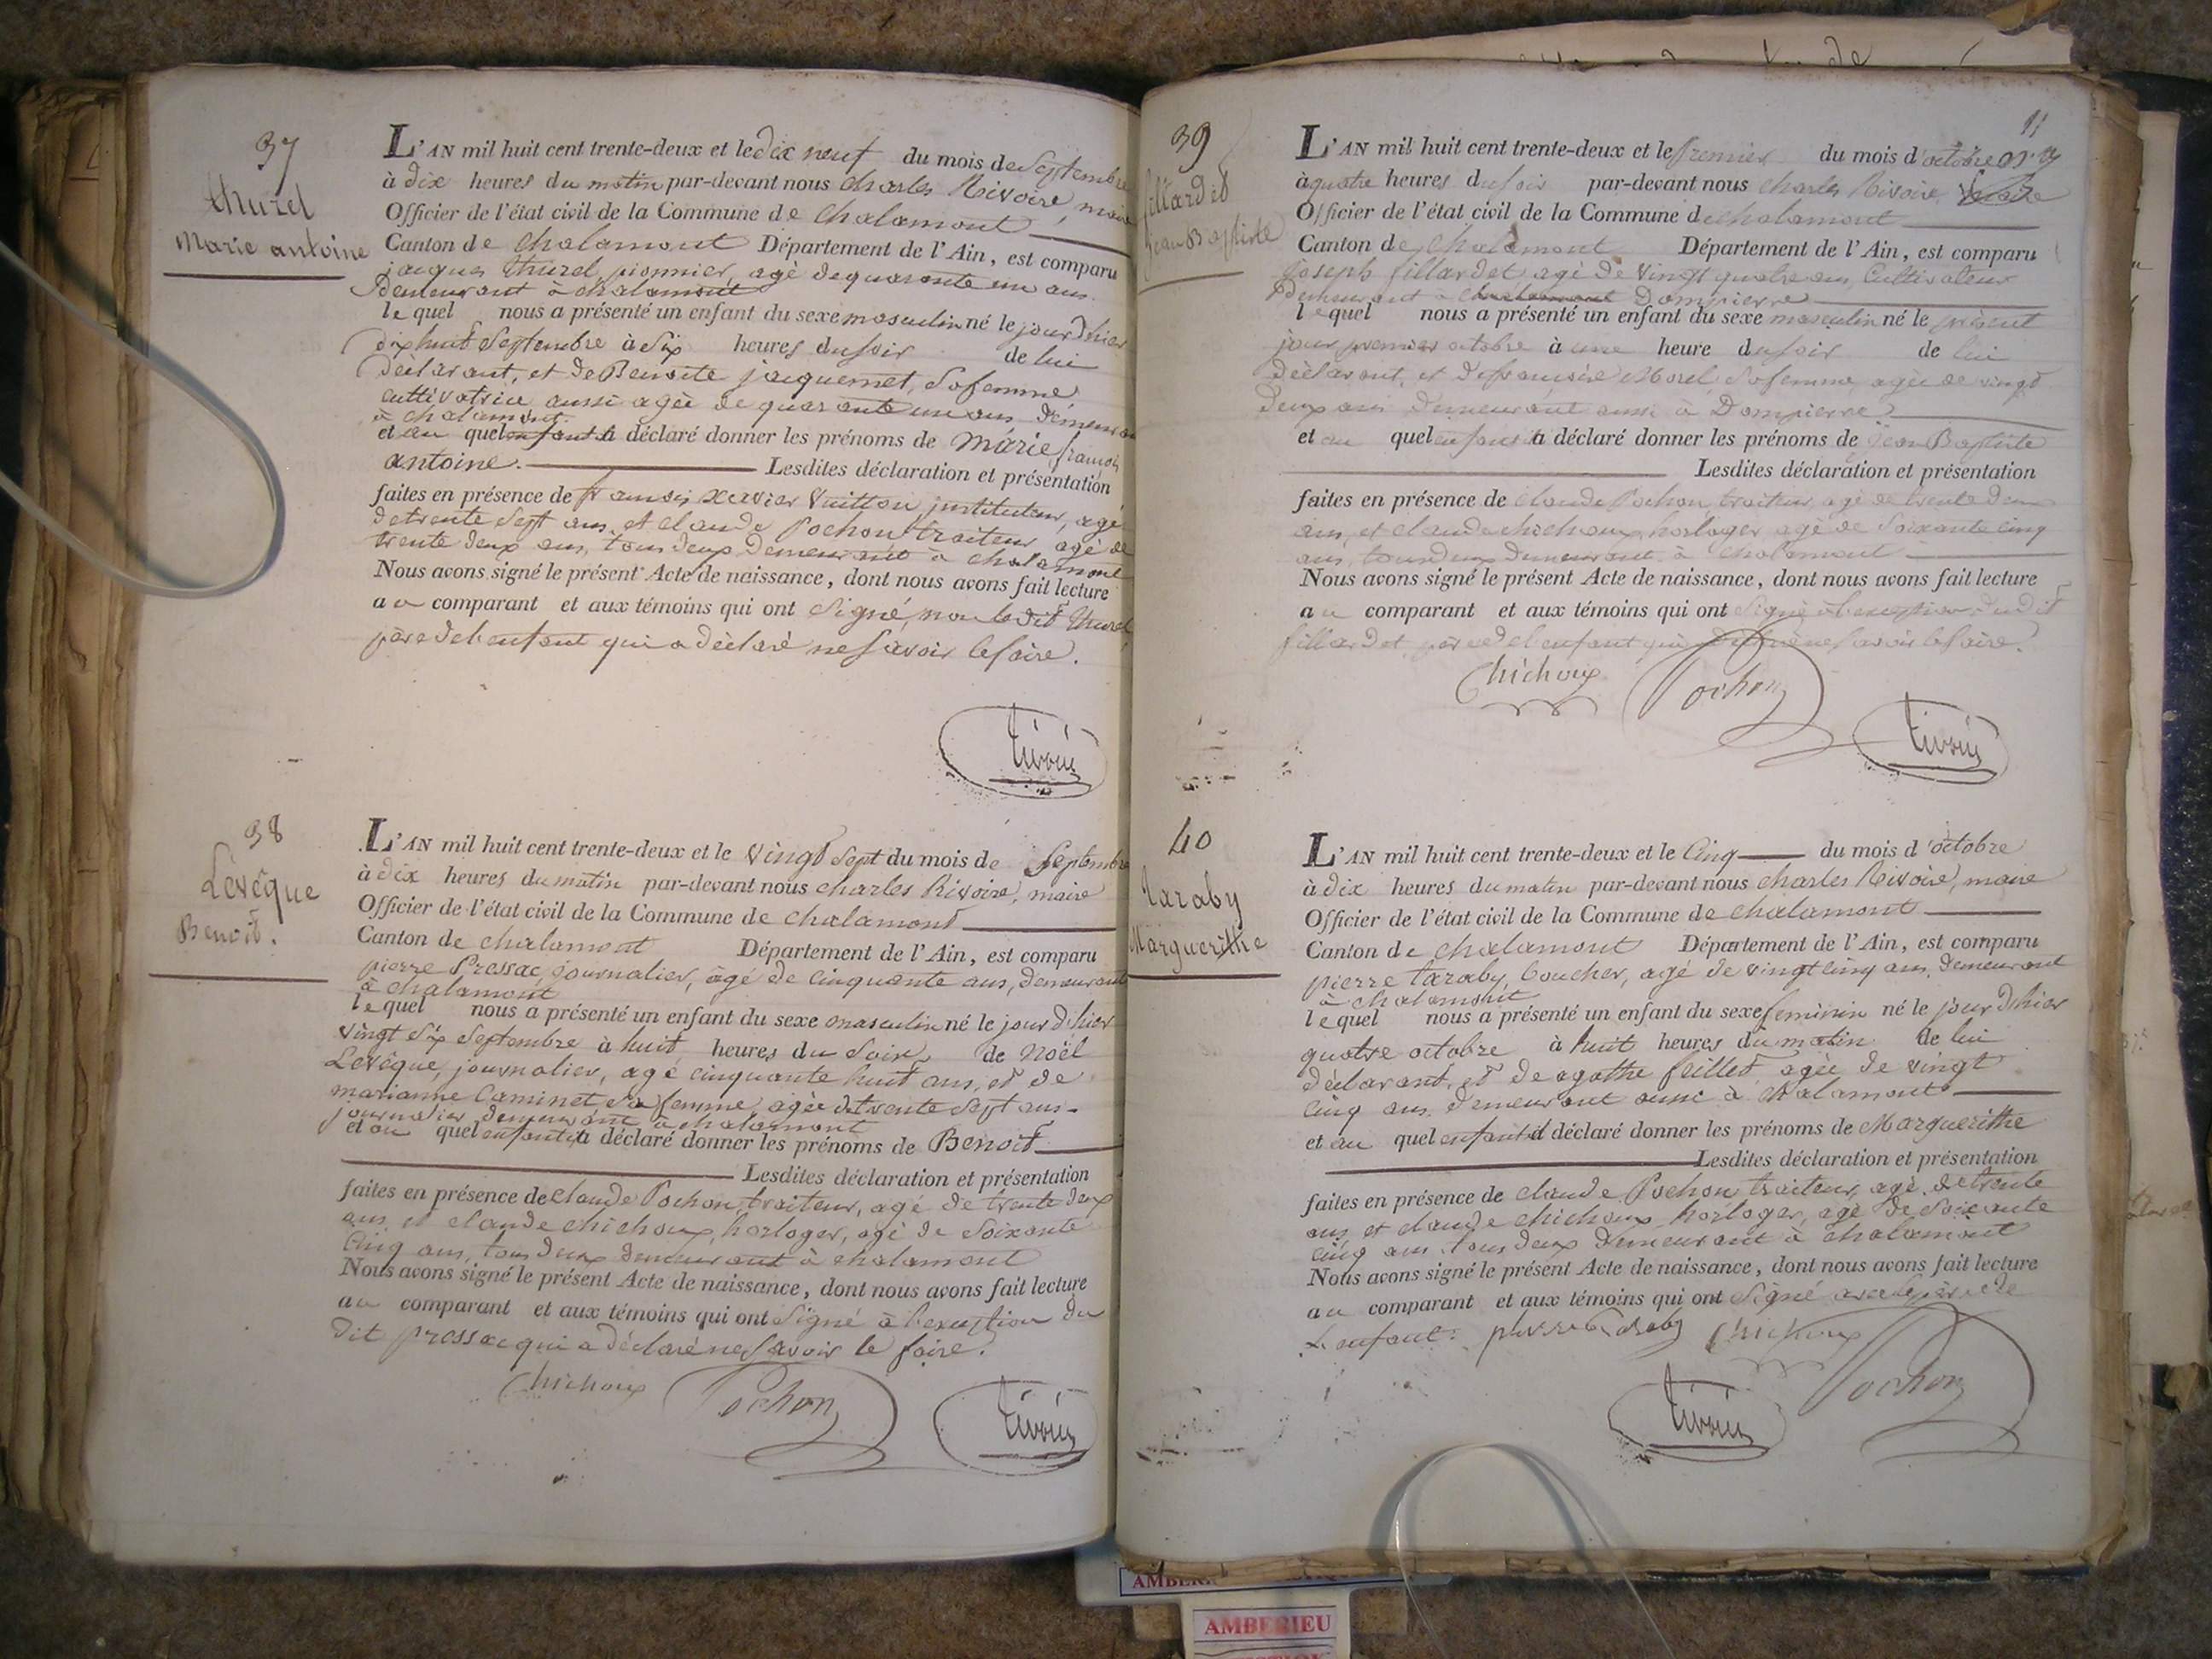 37
thurel
Marie antoine
L'AN mil huit cent trente-deux et le dix neuf du mois de Septembre
à dix heures du matin par-devant nous Charles Rivoire, maire
Officier de l'état civil de la Commune de Chalamont
Canton de Chalamont Département de l'Ain, est comparu
jacques thurel, pionnier, agé de quarante un ans
demeurant à chalamont
le quel nous a présenté un enfant du sexe masculin né le jour d'hier
dix huit Septembre à Six heures du soir de lui
déclarant, et de Benoite jacquemet, Sa femme
cultivatrice aussi agée de quarante un ans demeurant
à chalamont
et au quel enfant il a déclaré donner les prénoms de Marie françois
antoine. Lesdites déclaration et présentation
faites en présence de françois xavier Vuitton instituteur, agé
de trente Sept ans, et claude Pochon traiteur agé de
trente deux ans, tous deux demeurant à chalamont
Nous avons signé le présent Acte de naissance, dont nous avons fait lecture
au comparant et aux témoins qui ont Signé, non le dit thurel
père de l'enfant qui a déclaré ne Savoir le faire.
38
Levêque
Benoit.
L'AN mil huit cent trente-deux et le vingt Sept du mois de Septembre
à dix heures du matin par-devant nous charles Rivoire, maire
Officier de l'état civil de la Commune de chalamont
Canton de chalamont Département de l'Ain, est comparu
pierre Pressac, journalier, agé de cinquante ans, demeurant
à chalamont
le quel nous a présenté un enfant du sexe masculin né le jour d'hier
vingt Six Septembre à huit heures du Soir de Noël
Levêque, journalier, agé cinquante huit ans, et de
marianne Caminet Sa femme agée de trente Sept ans
journalier demeurant à chalamont
et au quel enfant il a déclaré donner les prénoms de Benoit
Lesdites déclaration et présentation
faites en présence de claude Pochon, traiteur, agé de trente deux
ans, et claude chichoux, horloger, agé de Soixante
cinq ans, tous deux demeurant à chalamont
Nous avons signé le présent Acte de naissance, dont nous avons fait lecture
au comparant et aux témoins qui ont Signé à l'exception du
dit pressac qui a déclaré ne Savoir le faire.
Chichoux Pochon
39
fillardet
jean Baptiste
11
L'AN mil huit cent trente-deux et le premier du mois d'octobre
à quatre heures du soir par-devant nous Charles Rivoire,
Officier de l'état civil de la Commune de chalamont
Canton de Chalamont Département de l'Ain, est comparu
joseph fillardet agé de vingt quatre ans, Cultivateur
demeurant à chalamont Dompierre
le quel nous a présenté un enfant du sexe masculin né le présent
jour premier octobre à une heure du soir de lui
déclarant, et de françoise Morel, Sa femme, agée de vingt
deux ans demeurant aussi à Dompierre
et au quel enfant il a déclaré donner les prénoms de jean Baptiste
Lesdites déclaration et présentation
faites en présence de claude Pochon, traiteur, agé de trente deux
ans, et claude chichoux, horloger, agé de Soixante cinq
ans, tous deux demeurant à chalamont
Nous avons signé le présent Acte de naissance, dont nous avons fait lecture
au comparant et aux témoins qui ont Signé à l'exception dudit
fillardet père de l'enfant qui a déclaré ne Savoir le faire.
Chichoux Pochon
40
taraby
Marguerithe
L'AN mil huit cent trente-deux et le Cinq du mois d'octobre
à dix heures du matin par-devant nous charles Rivoire, maire
Officier de l'état civil de la Commune de chalamont
Canton de chalamont Département de l'Ain, est comparu
pierre taraby, boucher, agé de vingt cinq ans, demeurant
à chalamont
le quel nous a présenté un enfant du sexe feminin né le jour d'hier
quatre octobre à huit heures du matin de lui
déclarant, et de agathe feillet agée de vingt
cinq ans demeurant aussi à chalamont
et au quel enfant il a déclaré donner les prénoms de Marguerithe
Lesdites déclaration et présentation
faites en présence de claude Pochon traiteur, agé de trente
ans, et claude chichoux, horloger, agé de Soixante
cinq ans, tous deux demeurant à chalamont
Nous avons signé le présent Acte de naissance, dont nous avons fait lecture
au comparant et aux témoins qui ont Signé avec le père de
L'enfant. Chichoux
Pochon
AMBERIEU